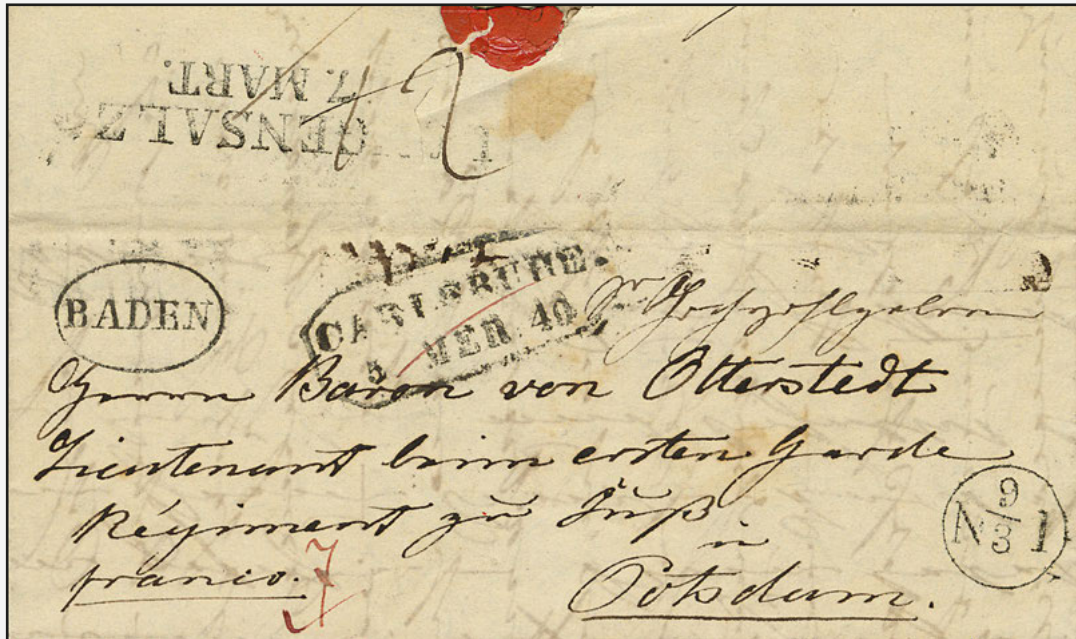 7. MART.
GENSALZ
2
BADEN
CARLSRUHE
5 MER 40
Sr Hochwohlgeboren
Herrn Baron von Otterstedt
Lieutenant beim ersten Garde
Régiment zu Fuß
in
franco.
7
Potsdam.
N 9/3 1